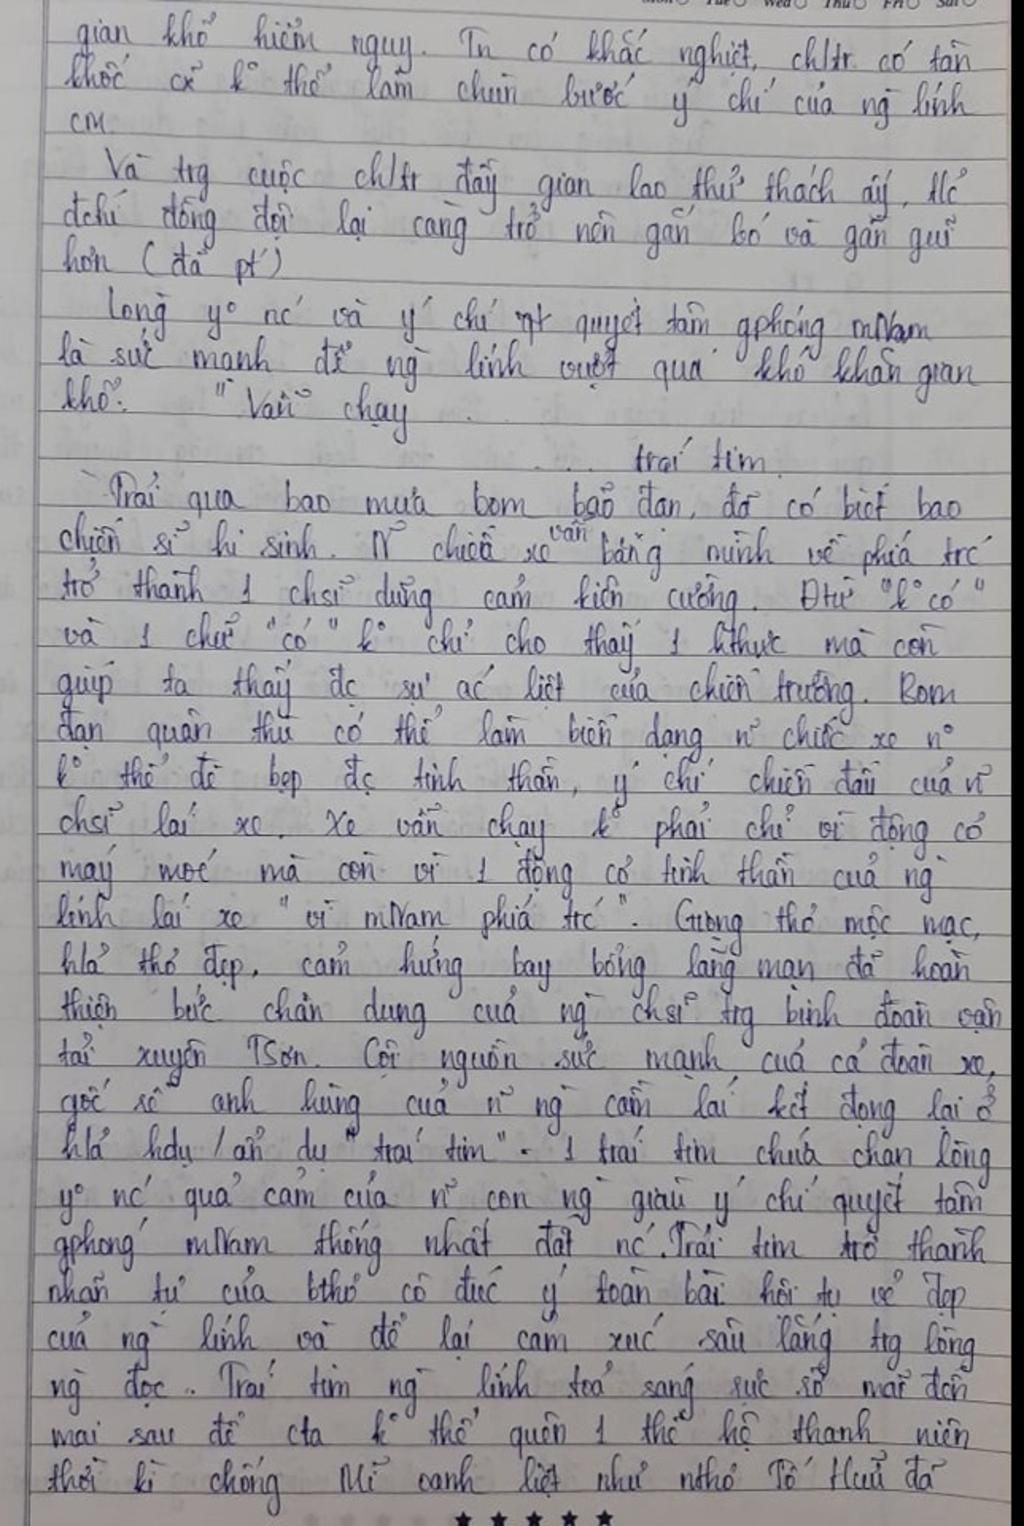 Mon Tue Wed Thu Fri Sat
gian khổ hiểm nguy. Tn có khắc nghiệt, ch/tr có tàn
khốc cx k° thể làm chùn bước ý chí của ng lính
CM.
Và trg cuộc ch/tr đầy gian lao thử thách ấy, t/c
đchí đồng đội lại càng trở nên gắn bó và gần gũi
hơn (đã pt)
Lòng y° nc và ý chí qt quyết tâm gphóng mNam
là sức mạnh để ng lính vượt qua khó khăn gian
khổ. "Vẫn chạy
... trái tim
Trải qua bao mưa bom bão đạn, đã có biết bao
chiến sĩ hi sinh. N~ chiếc xe vẫn băng mình về phía trc
trở thành 1 chsĩ dũng cảm kiên cường. Đtừ "k° có"
và 1 chữ "có" k° chỉ cho thấy 1 hthực mà còn
giúp ta thấy đc sự ác liệt của chiến trường. Bom
đạn quân thù có thể làm biến dạng n~ chiếc xe n°
k° thể đè bẹp đc tinh thần, ý chí chiến đấu của n~
chsĩ lái xe. Xe vẫn chạy k° phải chỉ vì động cơ
máy móc mà còn vì 1 động cơ tinh thần của ng
lính lái xe "vì mNam phía trc". Giọng thơ mộc mạc,
h/ả thơ đẹp, cảm hứng bay bổng lãng mạn đã hoàn
thiện bức chân dung của ng chsĩ trg binh đoàn vận
tải xuyên TSơn. Cội nguồn sức mạnh của cả đoàn xe,
gốc rễ anh hùng của n~ ng cầm lái kết đọng lại ở
h/ả hdụ / ẩn dụ "trái tim" - 1 trái tim chứa chan lòng
y° nc quả cảm của n~ con ng giàu ý chí quyết tâm
gphóng mNam thống nhất đất nc. Trái tim trở thành
nhãn tự của bthơ cô đúc ý toàn bài hội tụ vẻ đẹp
của ng lính và để lại cảm xúc sâu lắng trg lòng
ng đọc. Trái tim ng lính toả sáng rực rỡ mãi đến
mai sau để cta k° thể quên 1 thế hệ thanh niên
thời kì chống Mĩ oanh liệt như nthơ Tố Hữu đã